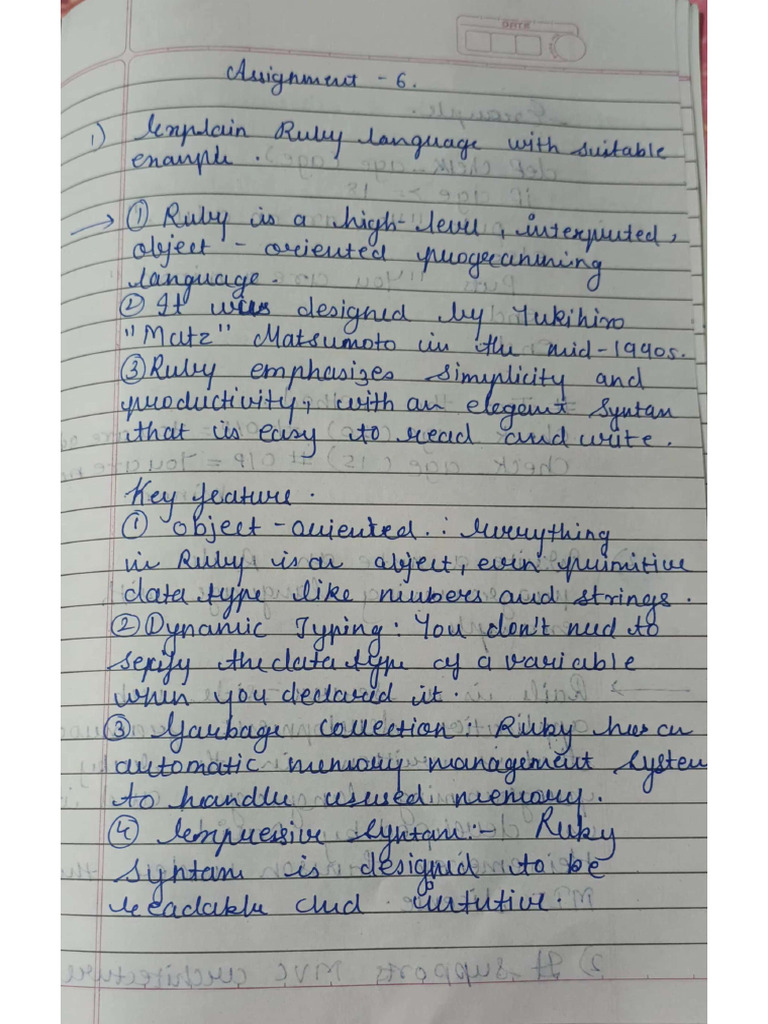 DATE
Assignment - 6.
1) Explain Ruby language with suitable
example.
→ ① Ruby is a high-level, interpreted,
object - oriented programming
language.
② It was designed by Yukihiro
"Matz" Matsumoto in the mid-1990s.
③ Ruby emphasizes simplicity and
productivity, with an elegant syntax
that is easy to read and write.
Key feature.
① object-oriented. : Everything
in Ruby is an object, even primitive
data type like numbers and strings.
② Dynamic Typing: You don't need to
sepify the data type of a variable
when you declared it.
③ Garbage collection: Ruby has an
automatic memory management system
to handle unused memory.
④ Expressive Syntax:- Ruby
Syntax is designed to be
readable and intutive.